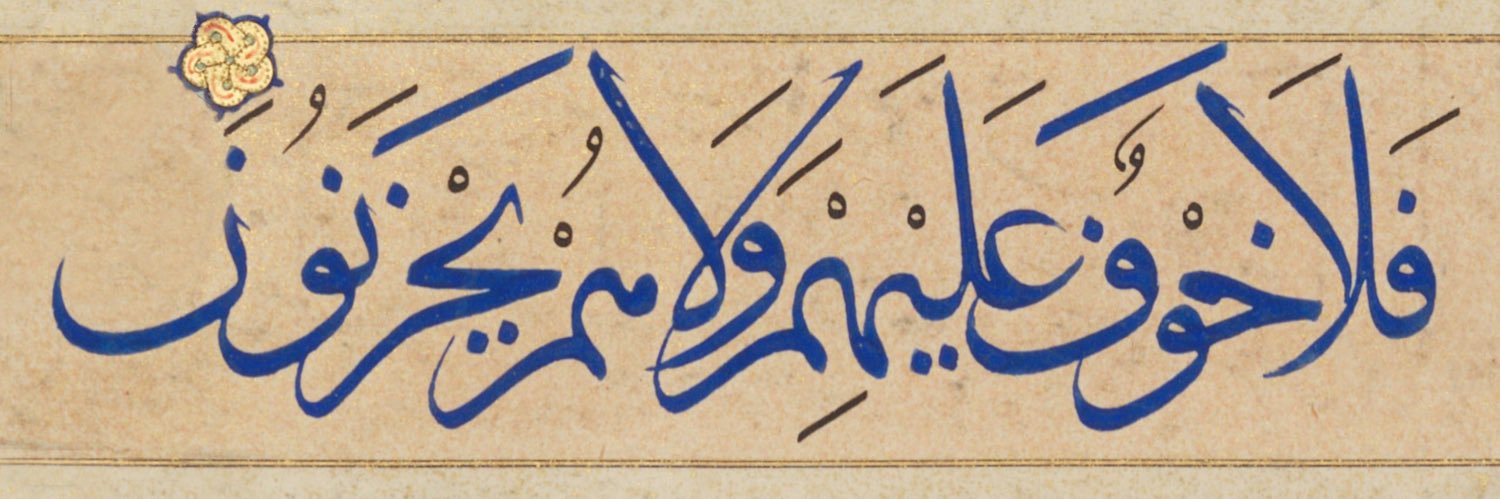 فَلَا خَوْفٌ عَلَيْهِمْ وَلَا هُمْ يَحْزَنُونَ